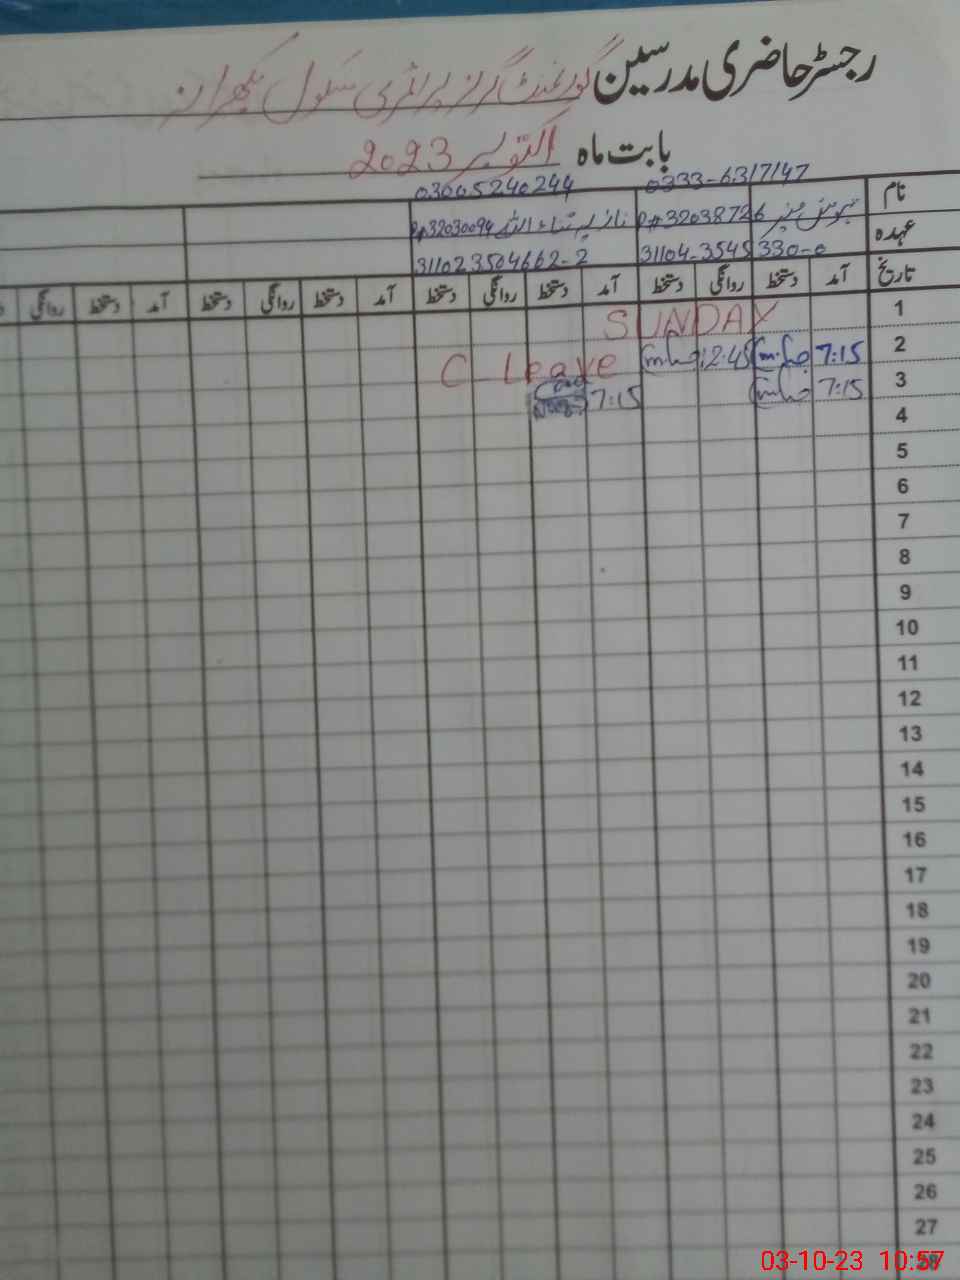 رجسٹر حاضری مدرسین گورنمنٹ گرلز پرائمری سکول
بابت ماہ اکتوبر 2023
0333-6317147 03005240244
نام P#32038726 نازیہ ثناء اللہ P#32030094
عہدہ 31104-3545330-0 311023504662-2
تاریخ آمد دستخط روانگی دستخط آمد دستخط روانگی دستخط آمد دستخط روانگی دستخط آمد دستخط روانگی
1 SUNDAY
2 7:15 12:45 C Leave
3 7:15 7:15
4
5
6
7
8
9
10
11
12
13
14
15
16
17
18
19
20
21
22
23
24
25
26
27
28
03-10-23 10:57